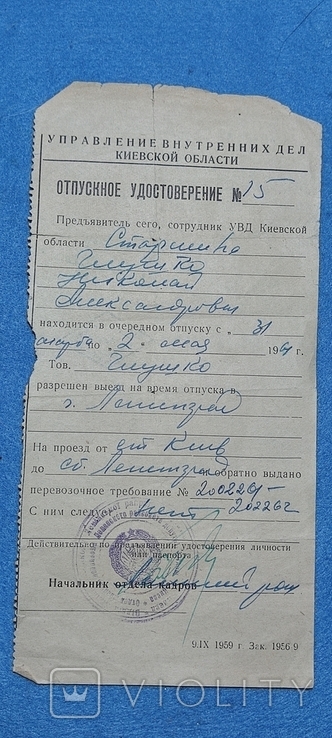 УПРАВЛЕНИЕ ВНУТРЕННИХ ДЕЛ
КИЕВСКОЙ ОБЛАСТИ
ОТПУСКНОЕ УДОСТОВЕРЕНИЕ № 15
Предъявитель сего, сотрудник УВД Киевской
области Старшина
Глушко
Николай
Александрович
находится в очередном отпуску с „ 31
марта по 2 мая 1961 г.
Тов. Глушко
разрешен выезд на время отпуска в
г. Ленинград
На проезд от ст Киев
до ст. Ленинград и обратно выдано
перевозочное требование № 200226/-
С ним следует 202262
Действительно по предъявлении удостоверения личности
или паспорта
Начальник отдела кадров
9.IX 1959 г. Зак. 1956 9
VIOLITY